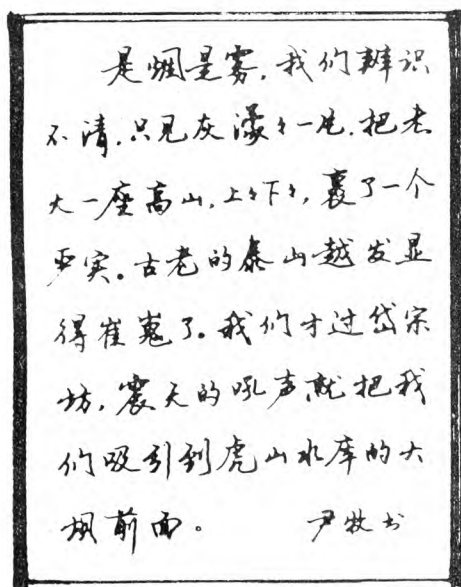 是烟是雾，我们辨识
不清，只见灰濛々一片，把老
大一座高山，上々下々，裹了一个
严实。古老的泰山越发显
得崔嵬了。我们才过岱宗
坊，震天的吼声就把我
们吸引到虎山水库的大
坝前面。 尹牧书